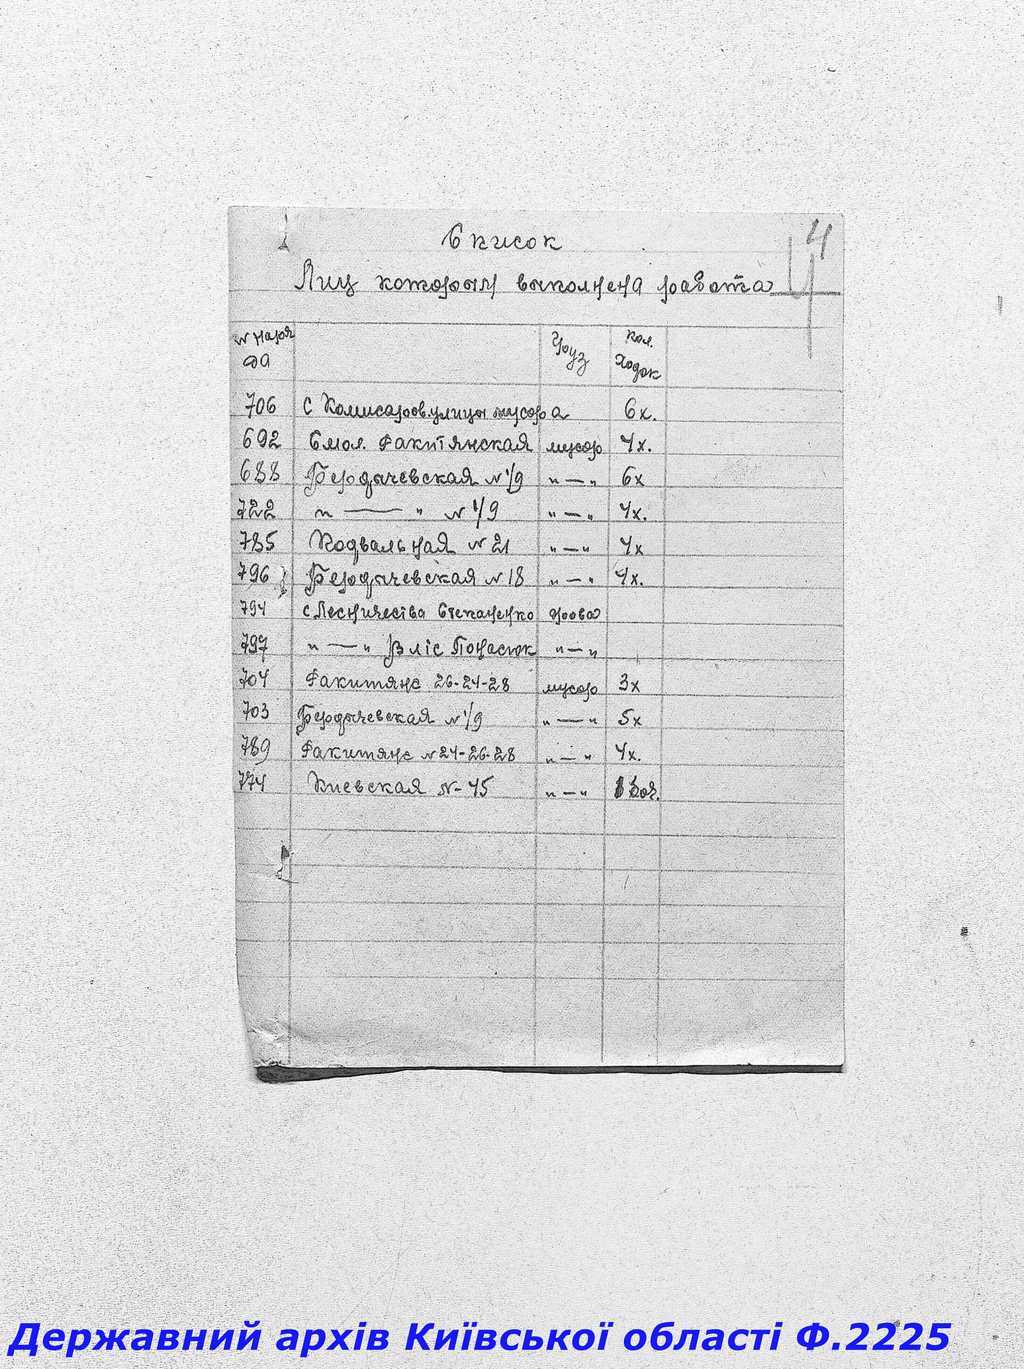 4
Список
Лиц которым выполнена работа
№ наря
да
Груз
Кол.
Ходок
706 с Комисаров.улицы мусора 6х.
692 Смол. Ракитянская мусор 4х.
688 Бердычевская №1/9 "—" 6х
722 "——" №1/9 "—" 4х.
785 Подвальная №21 "—" 4х
796 Бердычевская №18 "—" 4х.
794 с Лесничества Степаненко дрова
797 "—" В ліс Понасюк "—"
704 Ракитянс 26-24-28 мусор 3х
703 Бердычевская №1/9 "—" 5х
789 Ракитянс №24-26-28 "—" 4х.
774 Киевская №-45 "—"
Державний архів Київської області Ф.2225